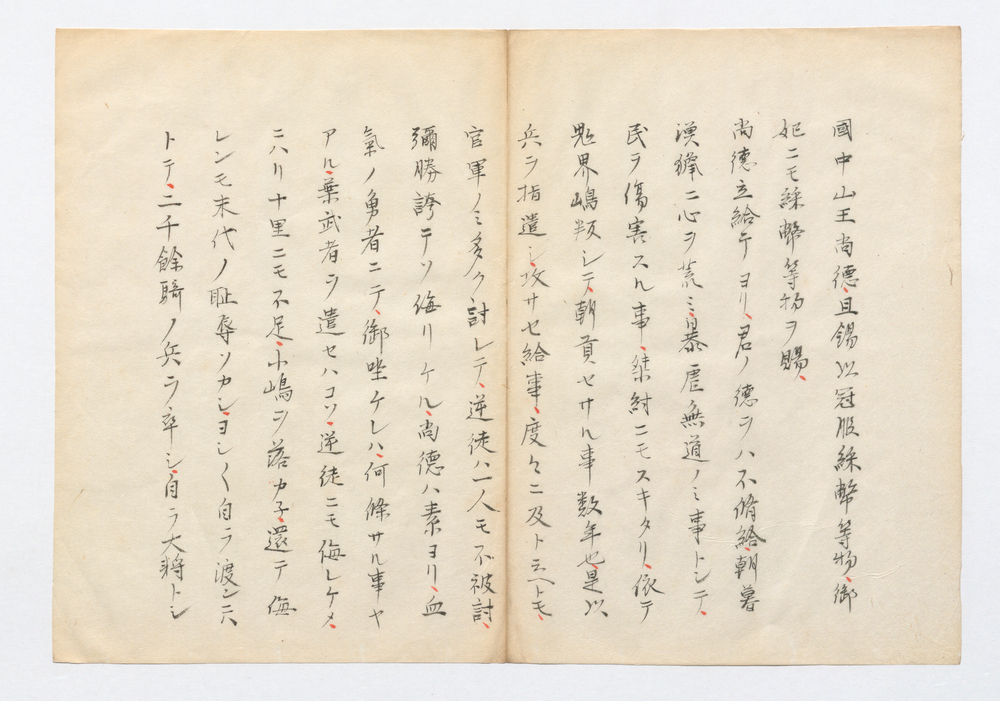 國中山王尚德、且錫以冠服綵幣等物、御
妃ニモ綵幣等物ヲ賜、
尚德立給テヨリ、君ノ德ヲハ不脩給、朝暮
漁獵ニ心ヲ荒ミ、暴虐無道ノミ事トシテ、
民ヲ傷害スル事、桀紂ニモスキタリ、依テ
鬼界嶋叛シテ、朝貢セサル事数年也、是以
兵ヲ指遣シ、攻サセ給事、度々ニ及トイヘトモ、
官軍ノミ多ク討レテ、逆徒ハ一人モ不被討、
彌勝誇テソ侮リケル、尚德ハ素ヨリ、血
氣ノ勇者ニテ、御坐ケレハ、何條サル事ヤ
アル、葉武者ヲ遣セハコソ、逆徒ニモ侮レケメ、
ニハリ十里ニモ不足、小嶋ヲ落カ子、還テ侮
レンモ末代ノ耻辱ソカシ、ヨシ〱自ラ渡ンニハ
トテ、二千餘騎ノ兵ヲ卒シ、自ラ大将トシ